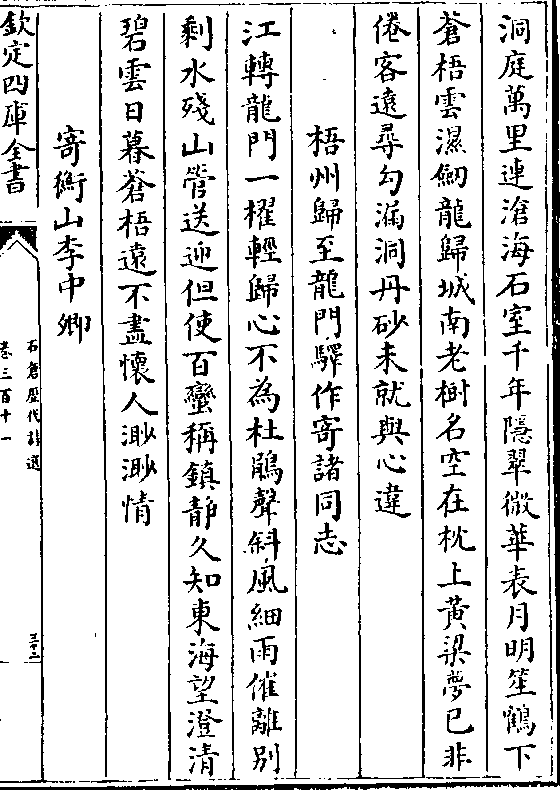 洞庭萬里連滄海石室千年隱翠微華表月明笙鶴下
蒼梧雲濕劒龍歸城南老樹名空在枕上黄粱夢已非
倦客遠尋勾漏洞丹砂未就與心違
梧州歸至龍門驛作寄諸同志
江轉龍門一櫂輕歸心不為杜鵑聲斜風細雨催離别
剩水殘山管送迎但使百蠻稱鎮静久知東海望澄清
碧雲日暮蒼梧遠不盡懷人渺渺情
寄衡山李中卿
欽定四庫全書
石倉歷代詩選
卷三百十一
三十二